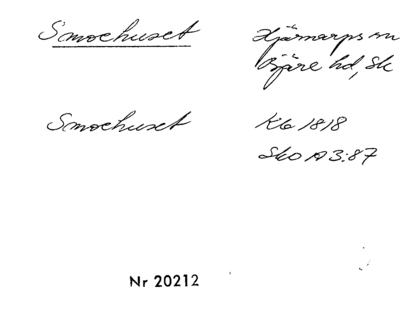 Smochuset Hjärnarps sn
Bjäre hd, Sk
Smochuset Kb 1818
SkO A3:87
Nr 20212